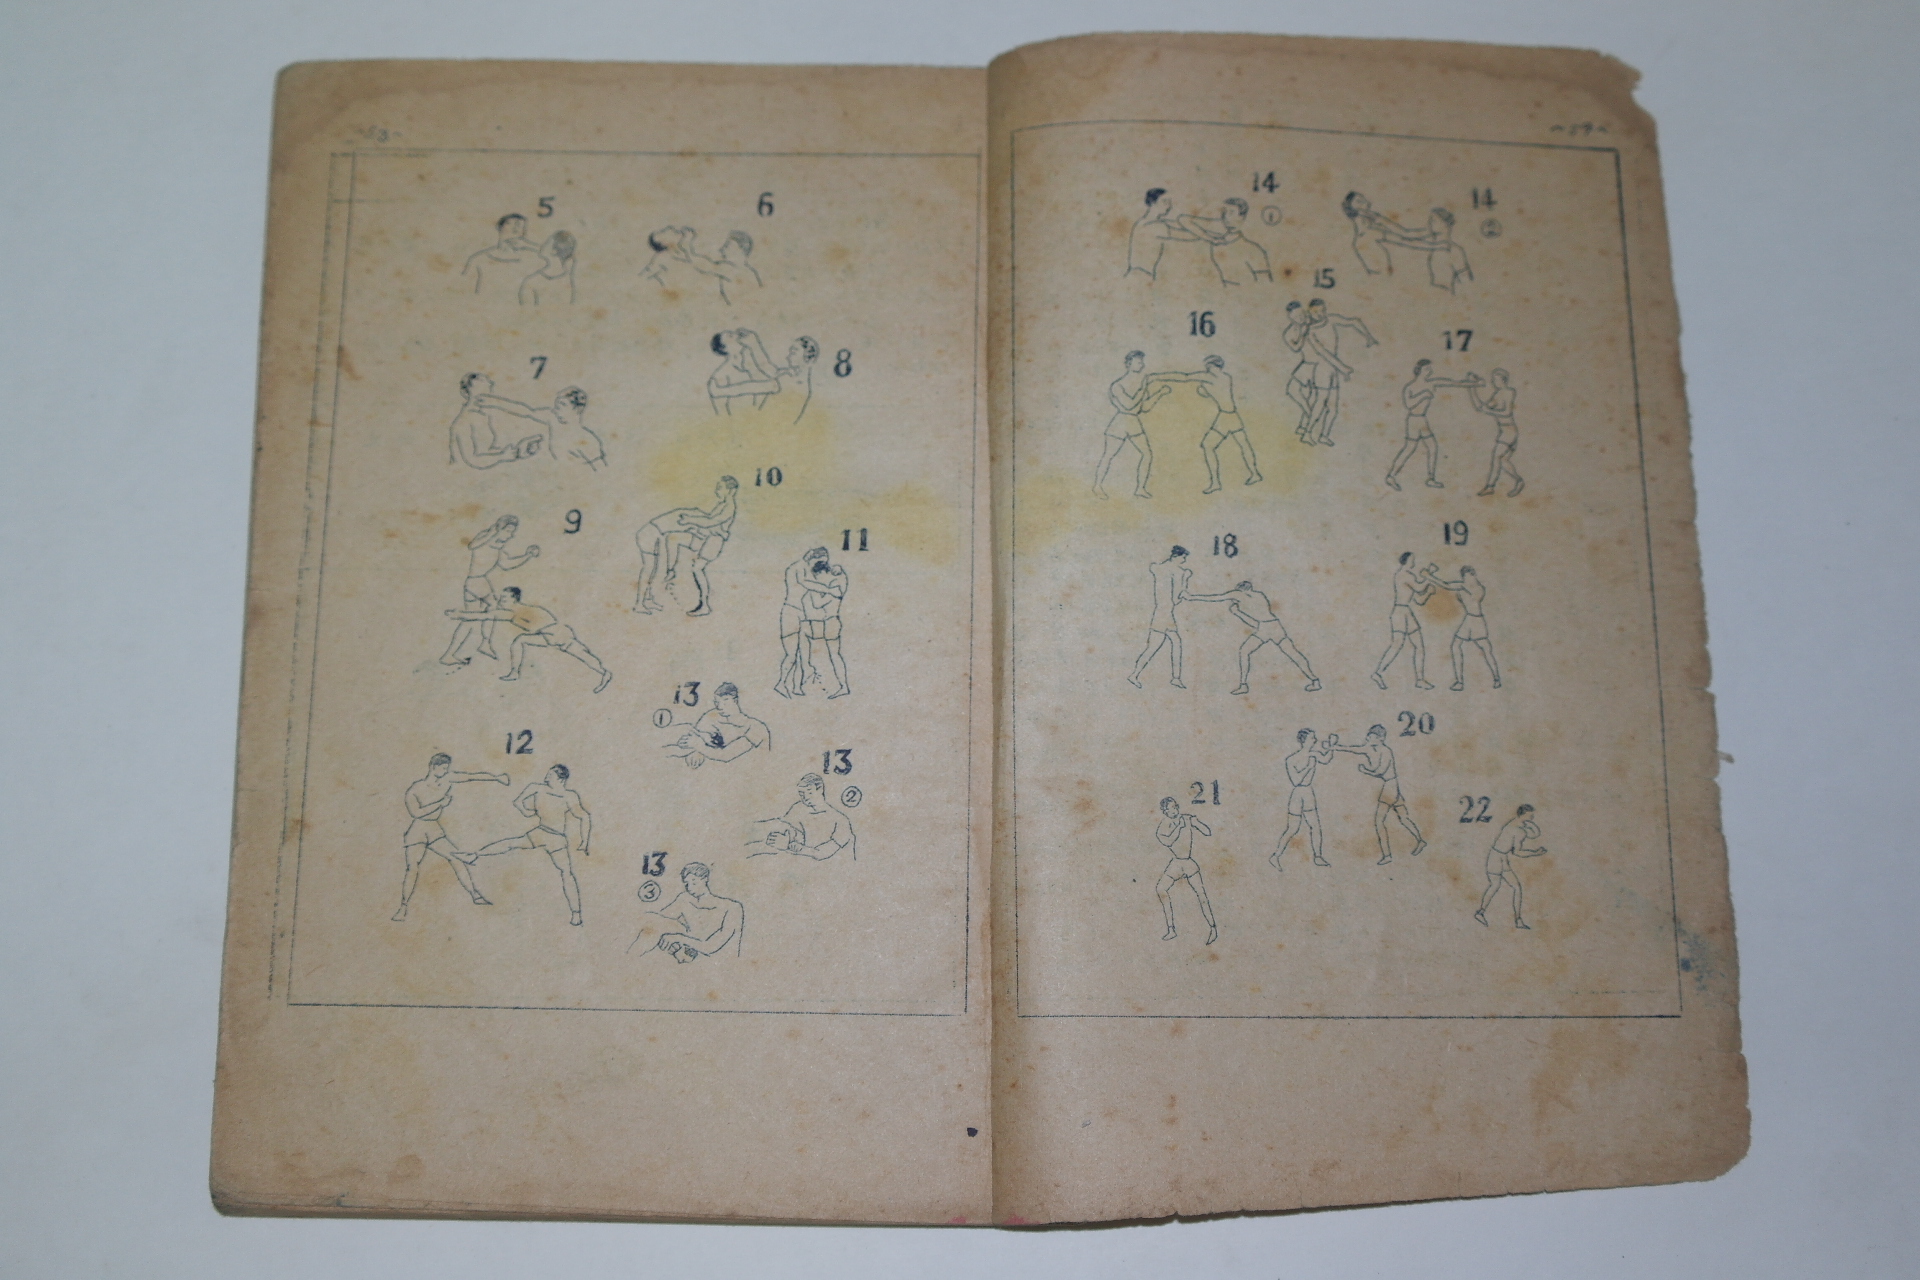 5
6
7
8
9
10
11
12
13
①
13
②
13
③
14
①
14
②
15
16
17
18
19
20
21
22